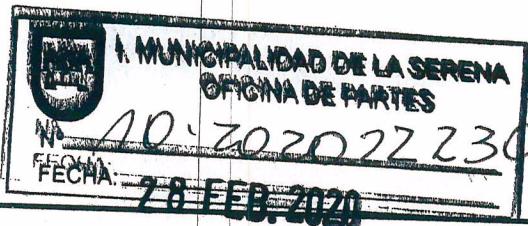 I. MUNICIPALIDAD DE LA SERENA
OFICINA DE PARTES
Nº 10-202022230
FECHA: 28 FEB. 2020